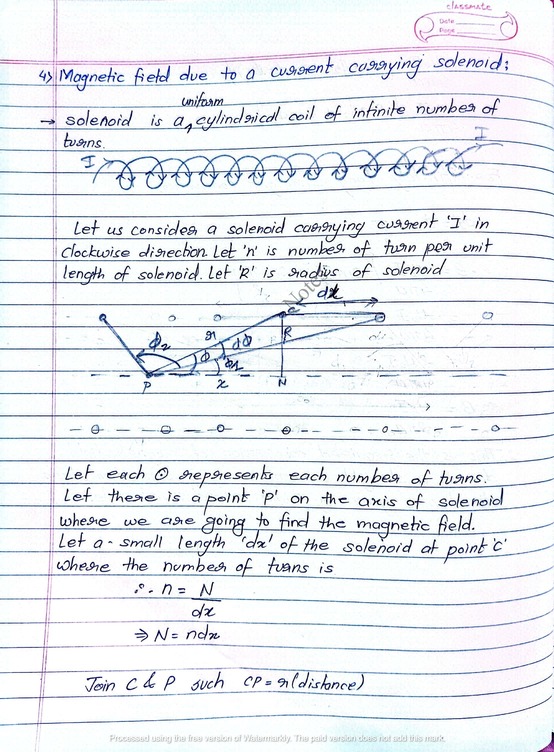 classmate
Date
Page
4) Magnetic field due to a current carrying solenoid;
uniform
→ solenoid is a, cylindrical coil of infinite number of
turns.
I I
Let us consider a solenoid carrying current 'I' in
clockwise direction. Let 'n' is number of turn per unit
length of solenoid. Let 'R' is radius of solenoid
Note
dx
C
ϕ2 r ϕ dϕ R
ϕ1
P x N
Let each ⊙ represents each number of turns.
Let there is a point 'P' on the axis of solenoid
where we are going to find the magnetic field.
Let a small length 'dx' of the solenoid at point 'C'
where the number of turns is
∴ n = N
dx
⇒ N = ndx
Join C & P such CP = r (distance)
Processed using the free version of Watermarkly. The paid version does not add this mark.